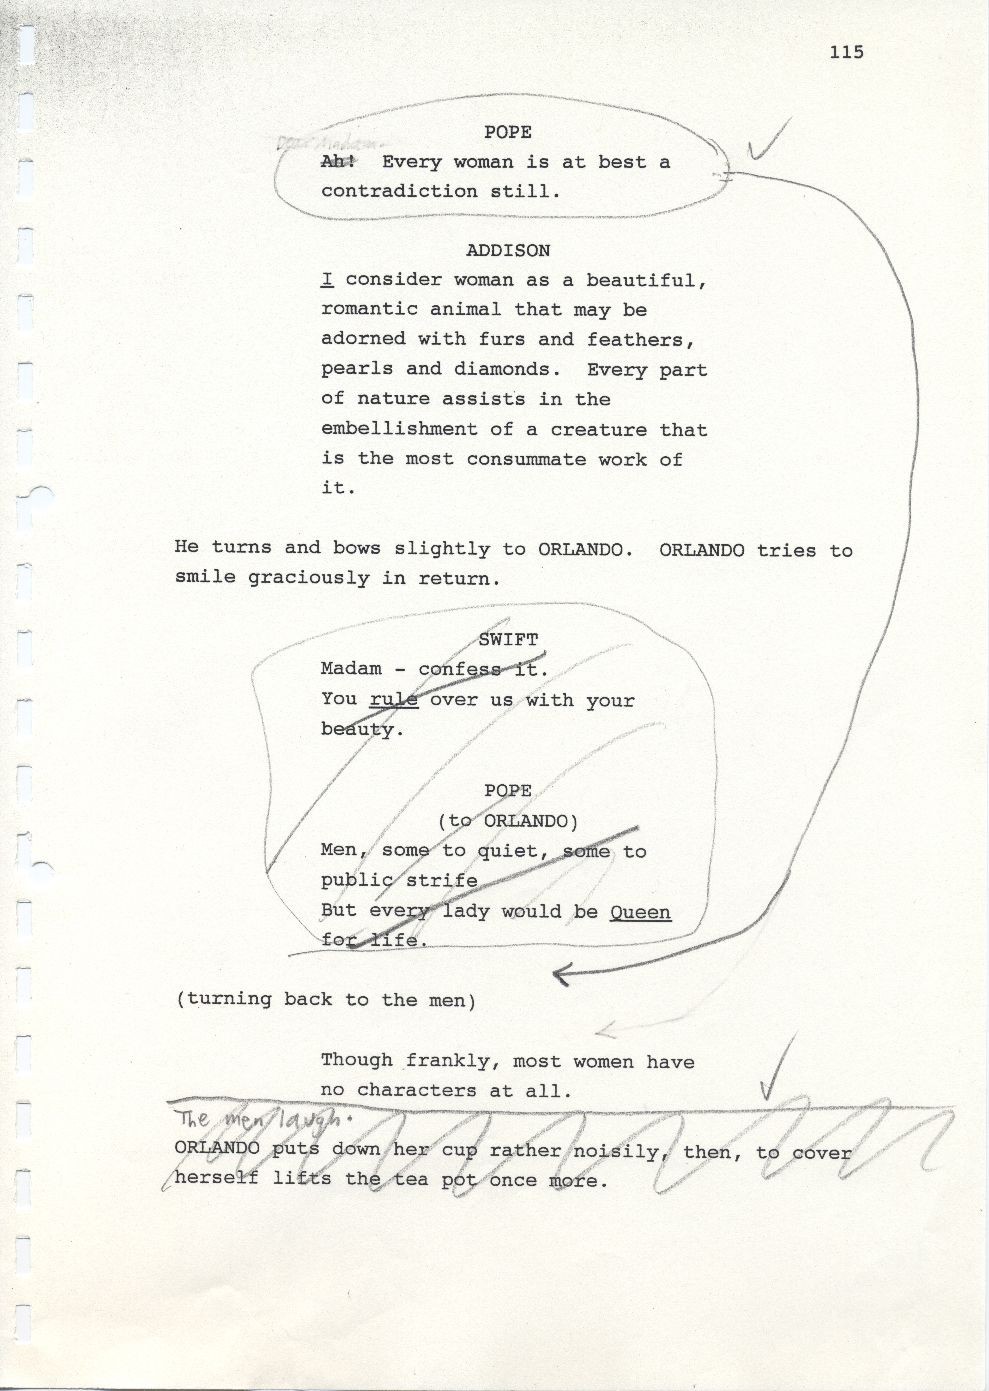 115
POPE
Dear Madam -
Ah! Every woman is at best a
contradiction still.
ADDISON
I consider woman as a beautiful,
romantic animal that may be
adorned with furs and feathers,
pearls and diamonds. Every part
of nature assists in the
embellishment of a creature that
is the most consummate work of
it.
He turns and bows slightly to ORLANDO. ORLANDO tries to
smile graciously in return.
SWIFT
Madam - confess it.
You rule over us with your
beauty.
POPE
(to ORLANDO)
Men, some to quiet, some to
public strife
But every lady would be Queen
for life.
(turning back to the men)
Though frankly, most women have
no characters at all.
The men laugh.
ORLANDO puts down her cup rather noisily, then, to cover
herself lifts the tea pot once more.